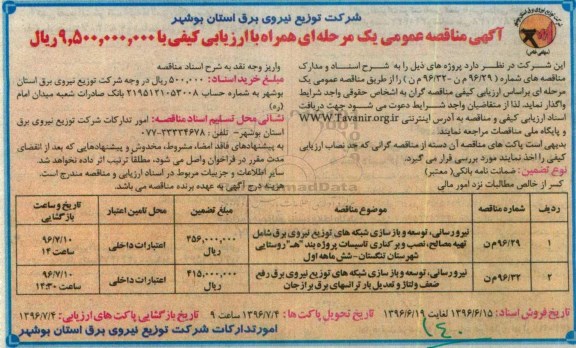 شرکت توزیع نیروی برق استان بوشهر
آگهی مناقصه عمومی یک مرحله ای همراه با ارزیابی کیفی با ۹,۵۰۰,۰۰۰,۰۰۰ ریال
این شرکت در نظر دارد پروژه های ذیل را به شرح اسناد و مدارک
مناقصه های شماره ( ۹۶/۲۹ م ن -۹۶/۳۲ م ن ) را از طریق مناقصه عمومی یک
مرحله ای براساس ارزیابی کیفی مناقصه گران به اشخاص حقوقی واجد شرایط
واگذار نماید. لذا از متقاضیان واجد شرایط دعوت می شود جهت دریافت
اسناد ارزیابی کیفی و مناقصه به آدرس اینترنتی www.Tavanir.org.ir
و پایگاه ملی مناقصات مراجعه نمایند.
بدیهی است پاکت های مناقصه آن دسته از مناقصه گرانی که حد نصاب ارزیابی
کیفی را اخذ نمایند مورد بررسی قرار می گیرد.
نوع تضمین: ضمانت نامه بانکی( معتبر)
کسر از خالص مطالبات نزد امور مالی
واریز وجه نقد به شرح اسناد مناقصه
مبلغ خرید اسناد: ۵۰۰,۰۰۰ ریال در وجه شرکت توزیع نیروی برق استان
بوشهر به شماره حساب ۲۱۹۵۱۲۱۰۵۳۰۰۸ بانک صادرات شعبه میدان امام
(ره)
نشانی محل تسلیم اسناد مناقصه: امور تدارکات شرکت توزیع نیروی برق
استان بوشهر- تلفن: ۲۳۳۳۴۶۷۸-۰۷۷
به پیشنهادهای فاقد امضاء، مشروط، مخدوش و پیشنهادهایی که بعد از انقضای
مدت مقرر در فراخوان واصل می شود، مطلقا ترتیب اثر داده نخواهد شد.
سایر اطلاعات و جزییات مربوط در اسناد ارزیابی و مناقصه مندرج است.
هزینه درج آگهی به عهده برنده مناقصه می باشد.
ردیف شماره مناقصه موضوع مناقصه مبلغ تضمین محل تامین اعتبار تاریخ و ساعت بازگشایی
۱ ۹۶/۲۹ م ن نیرورسانی، توسعه و بازسازی شبکه های توزیع نیروی برق شامل
تهیه مصالح، نصب و برکناری تاسیسات پروژه بند "هـ" روستایی
شهرستان تنگستان-شش ماهه اول ۴۵۶,۰۰۰,۰۰۰ ریال اعتبارات داخلی ۹۶/۷/۱۰ ساعت ۱۴
۲ ۹۶/۳۲ م ن نیرورسانی، توسعه و بازسازی شبکه های توزیع نیروی برق رفع
ضعف ولتاژ و تعدیل بار ترانسهای برق برازجان ۴۱۵,۰۰۰,۰۰۰ ریال اعتبارات داخلی ۹۶/۷/۱۰ ساعت ۱۴:۳۰
تاریخ فروش اسناد: ۱۳۹۶/۶/۱۵ لغایت ۱۳۹۶/۶/۱۹ تاریخ تحویل پاکت ها: ۱۳۹۶/۷/۴ ساعت ۹ تاریخ بازگشایی پاکت های ارزیابی: ۱۳۹۶/۷/۴
امور تدارکات شرکت توزیع نیروی برق استان بوشهر